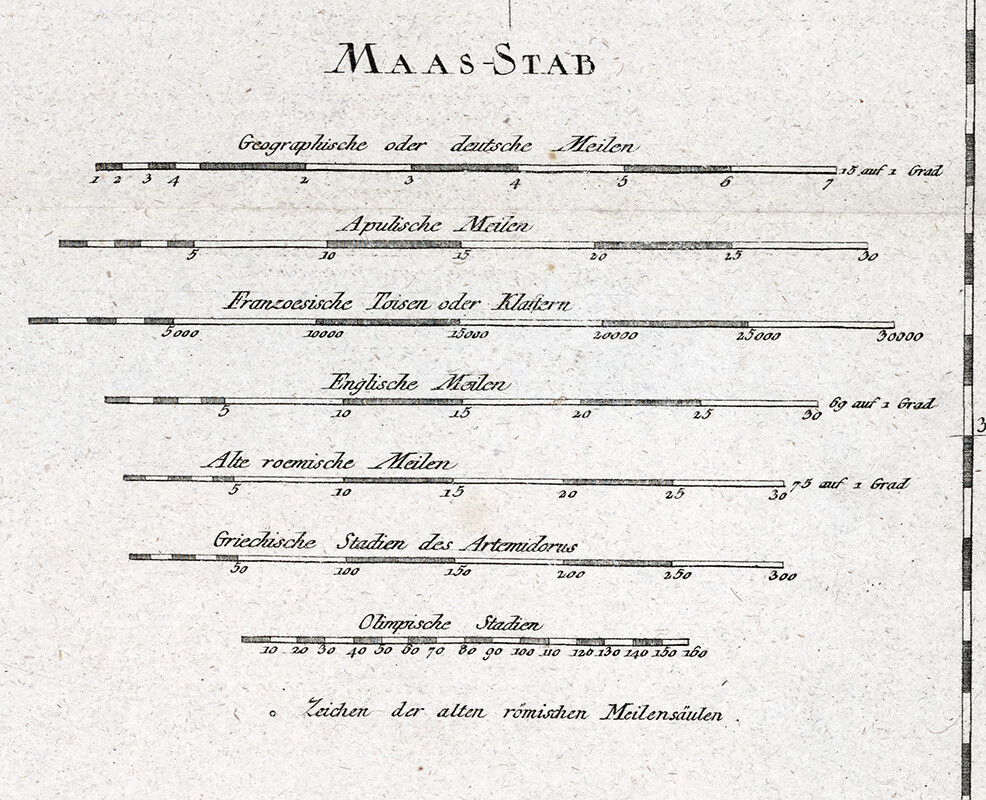 MAAS-STAB
Geographische oder deutsche Meilen
1 2 3 4 2 3 4 5 6 7 15 auf 1 Grad
Apulische Meilen
5 10 15 20 25 30
Franzoesische Toisen oder Klaftern
5000 10000 15000 20000 25000 30000
Englische Meilen
5 10 15 20 25 30 69 auf 1 Grad
3
Alte roemische Meilen
5 10 15 20 25 30 75 auf 1 Grad
Griechische Stadien des Artemidorus
50 100 150 200 250 300
Olimpische Stadien
10 20 30 40 50 60 70 80 90 100 110 120 130 140 150 160
Zeichen der alten römischen Meilensäulen.